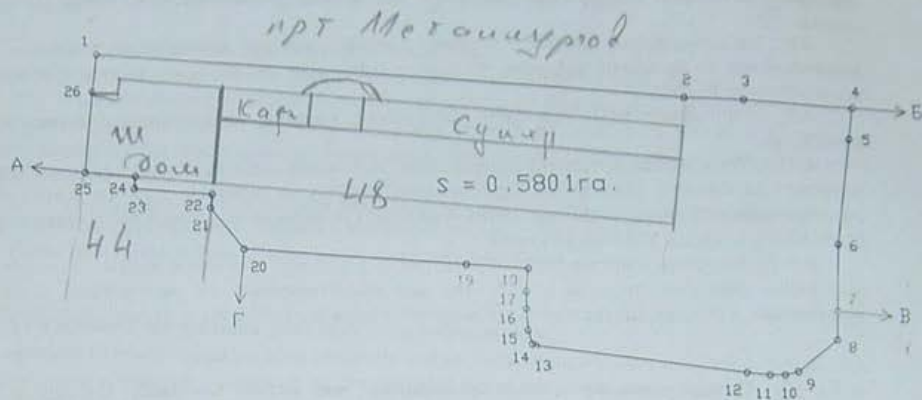 прт Металлургов
1
26
2
3
4
Б
5
Кафе
Супер
Ш
дом
А
25
24
23
22
21
48
S = 0.5801га.
44
6
20
19
18
17
16
15
14
13
7
В
8
Г
12
11
10
9